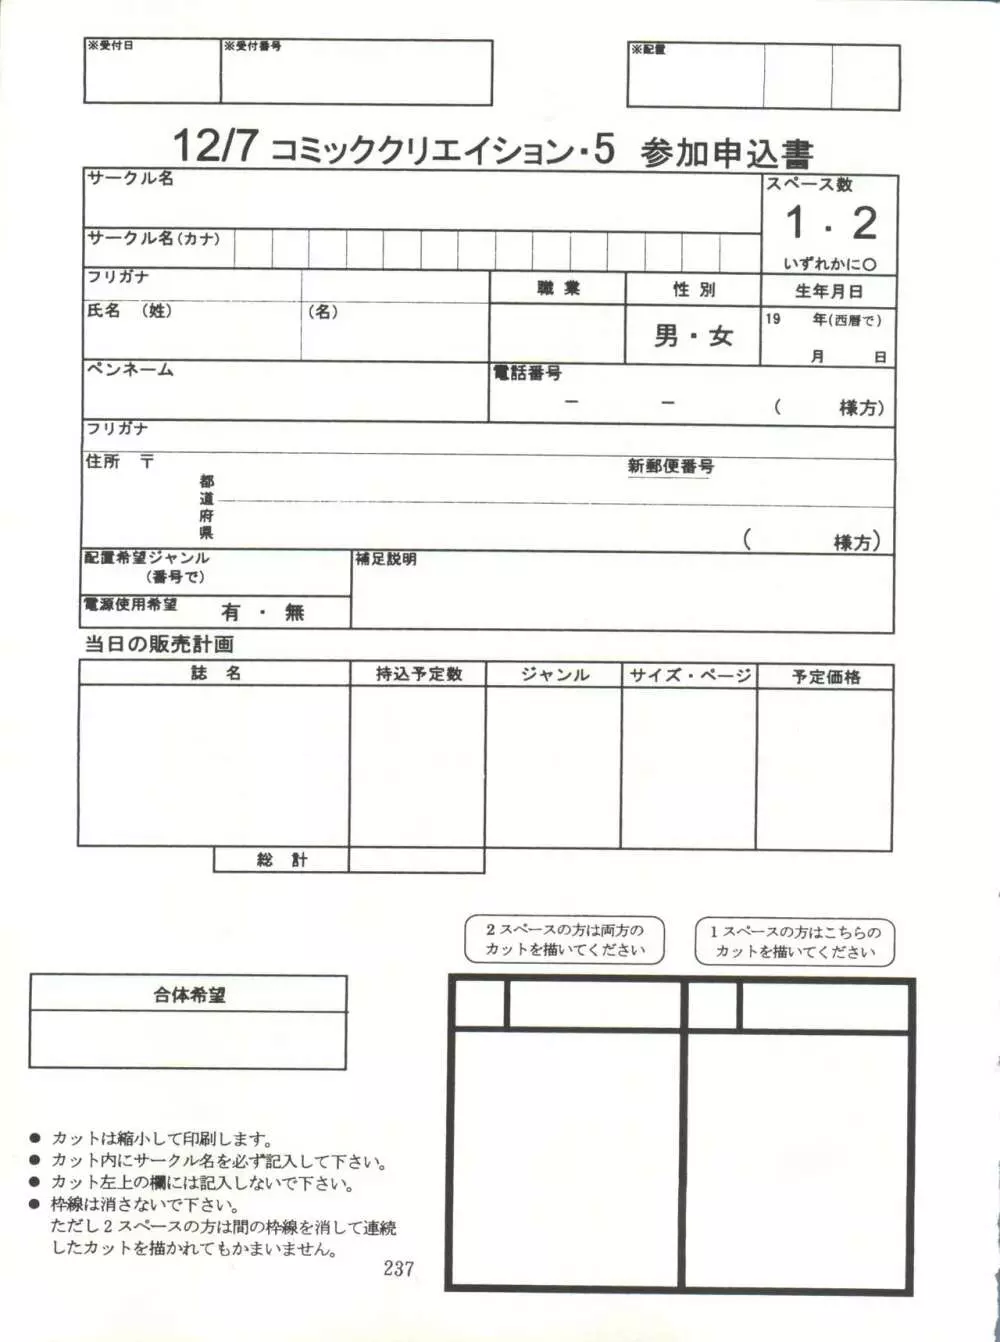 ※受付日 ※受付番号 ※配置
12/7 コミッククリエイション・5 参加申込書
サークル名
スペース数
1・2
いずれかに○
サークル名(カナ)
フリガナ
職業 性別 生年月日
氏名 (姓) (名)
男・女
19 年(西暦で)
月 日
ペンネーム
電話番号
－ － ( 様方)
フリガナ
住所 〒
新郵便番号
都
道
府
県
( 様方)
配置希望ジャンル
(番号で)
補足説明
電源使用希望 有・無
当日の販売計画
誌名 持込予定数 ジャンル サイズ・ページ 予定価格
総計
2スペースの方は両方の
カットを描いてください
1スペースの方はこちらの
カットを描いてください
合体希望
● カットは縮小して印刷します。
● カット内にサークル名を必ず記入して下さい。
● カット左上の欄には記入しないで下さい。
● 枠線は消さないで下さい。
ただし2スペースの方は間の枠線を消して連続
したカットを描かれてもかまいません。
237